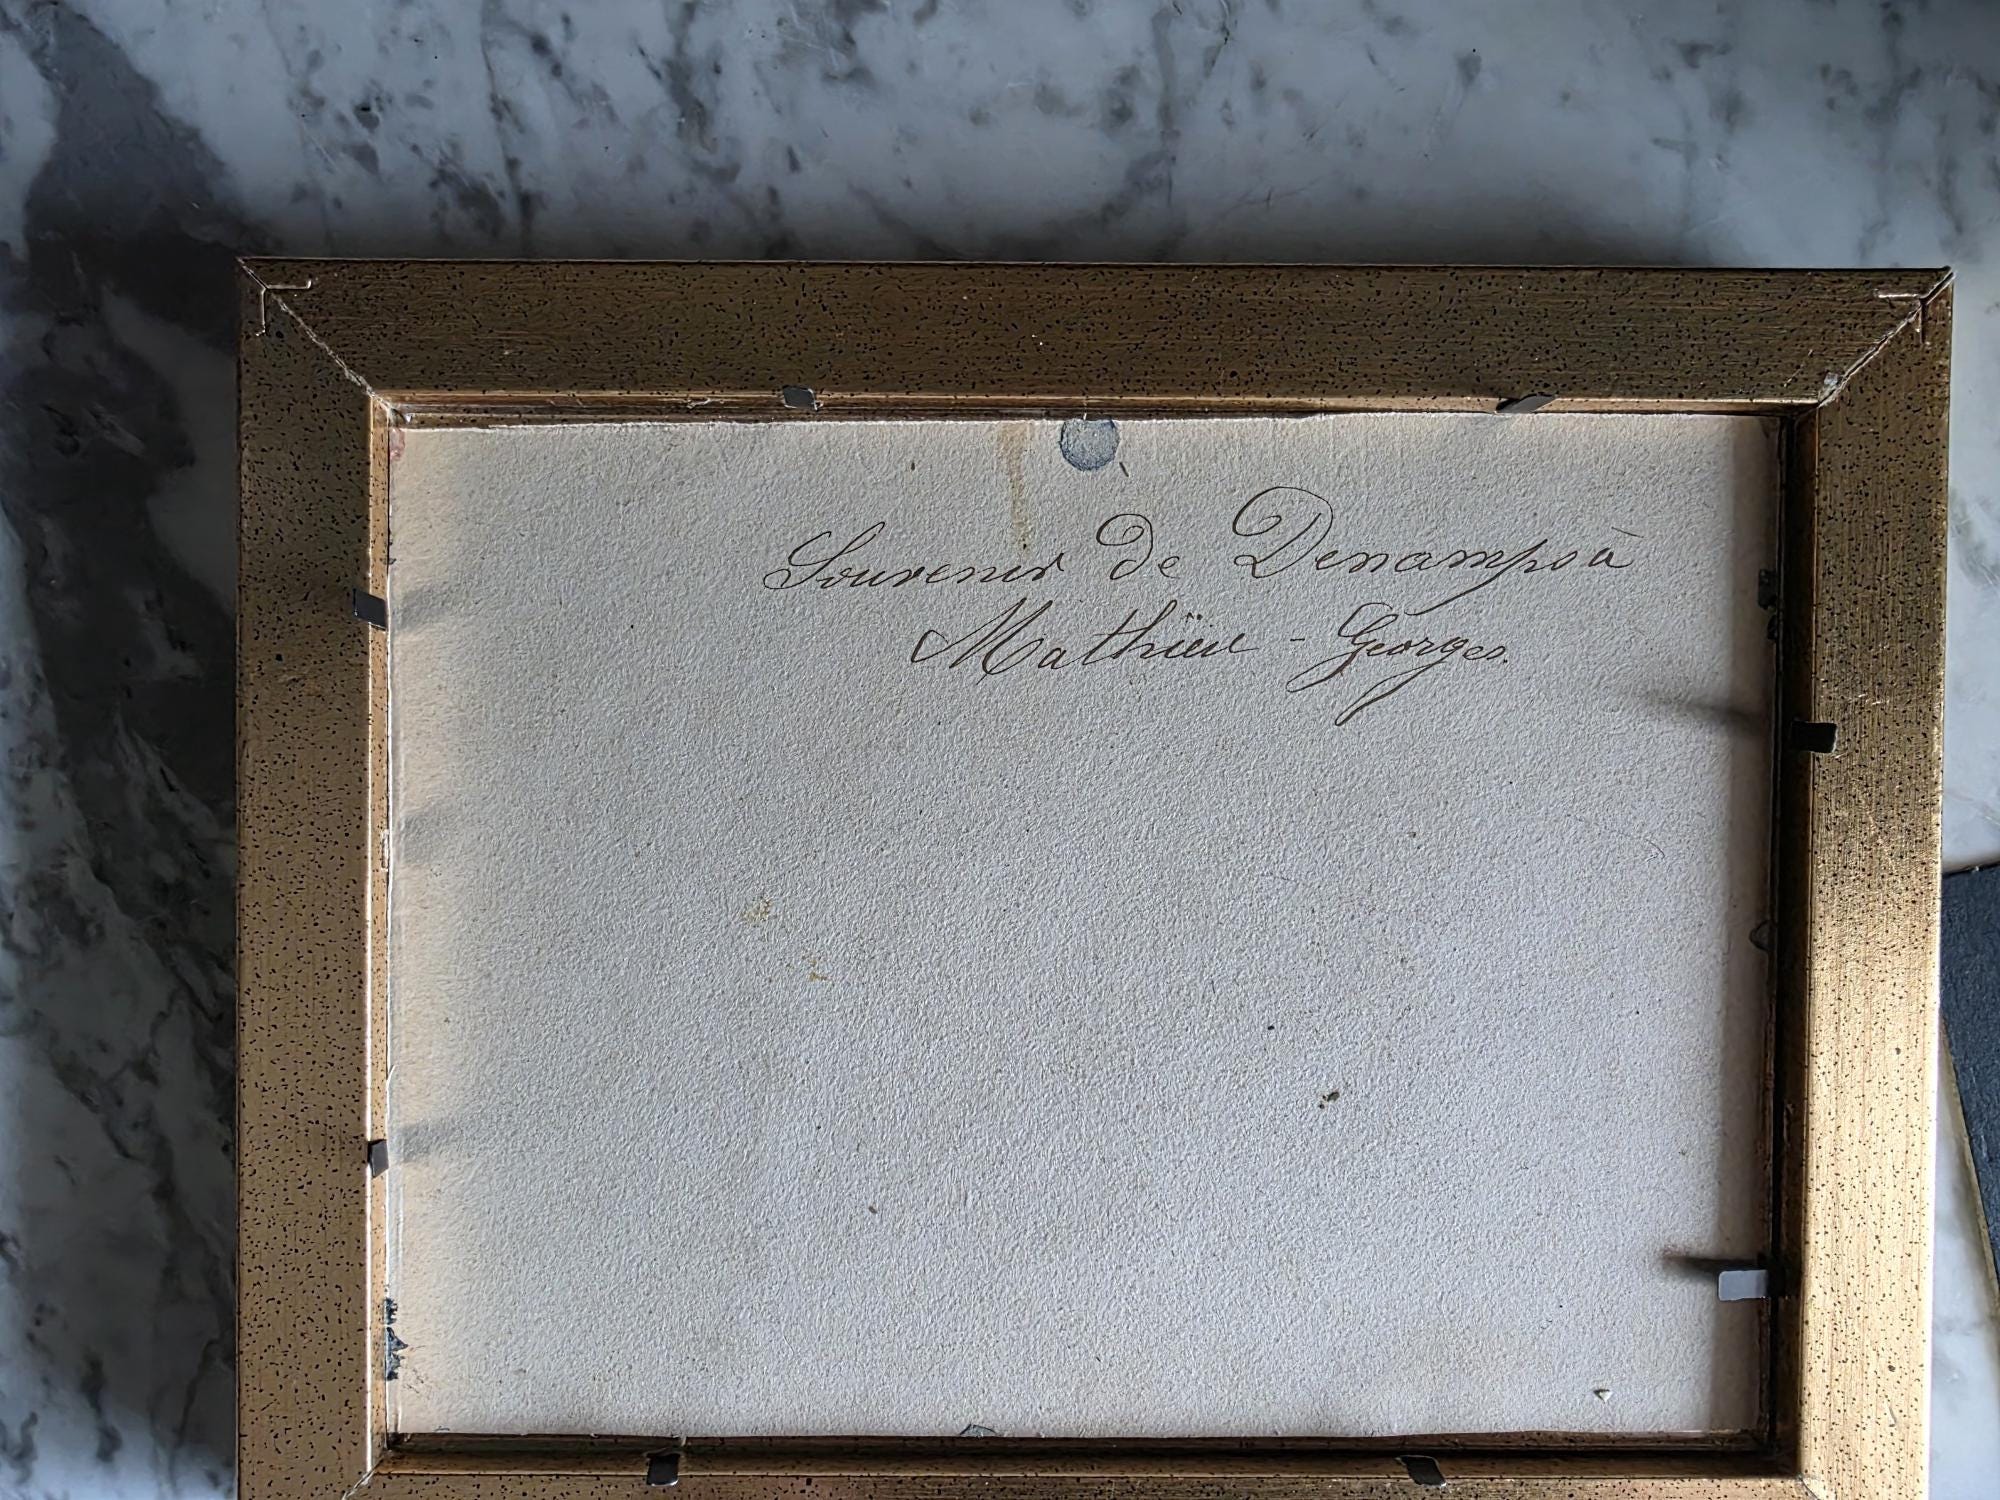 Souvenir de Denamps à
Mathïeu - Georges.